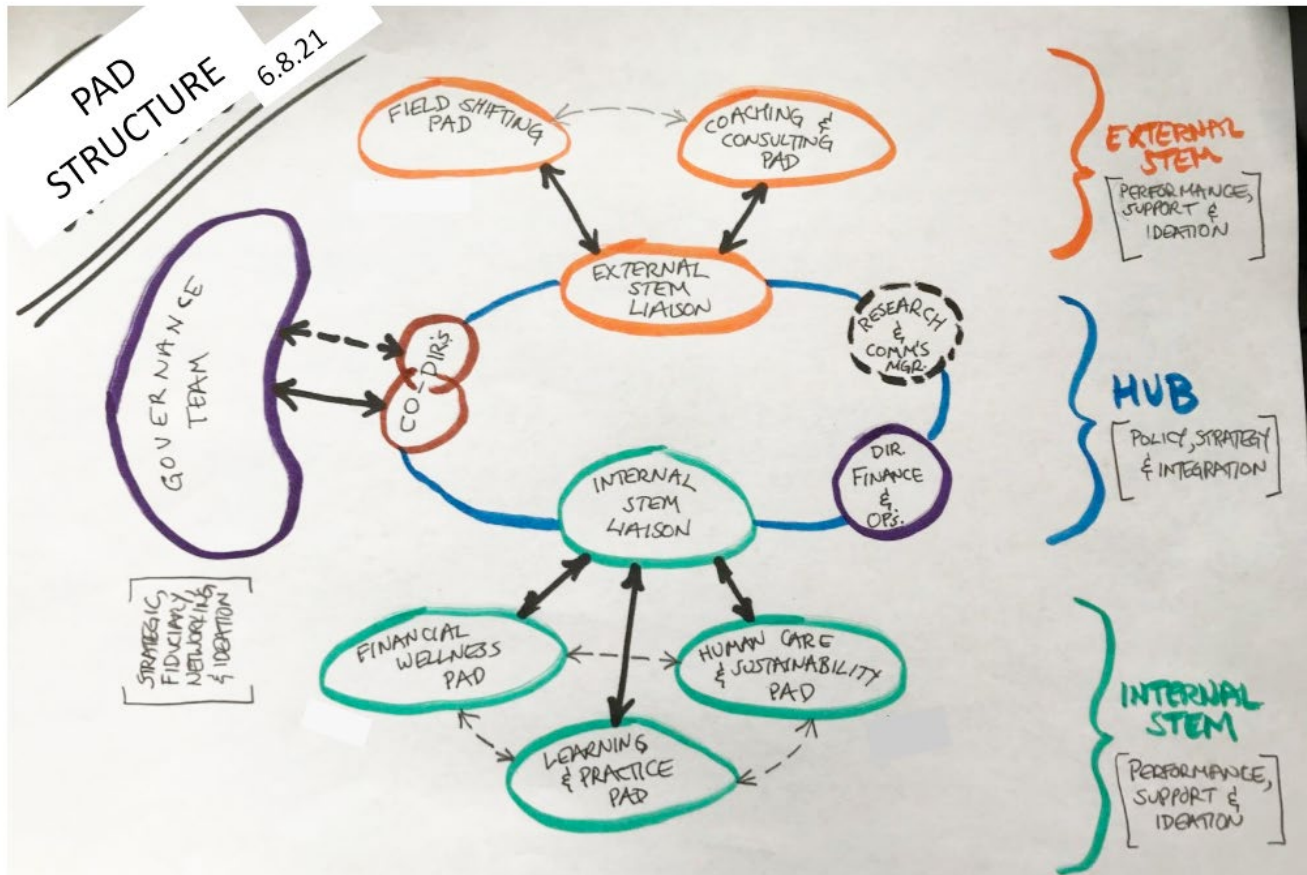 PAD
STRUCTURE
6.8.21
FIELD SHIFTING
PAD
COACHING &
CONSULTING
PAD
EXTERNAL
STEM
[PERFORMANCE,
SUPPORT &
IDEATION]
EXTERNAL
STEM
LIAISON
GOVERNANCE
TEAM
CO-DIR'S
RESEARCH
&
COMM'S
MGR.
HUB
[POLICY, STRATEGY
& INTEGRATION]
DIR.
FINANCE
&
OPS.
INTERNAL
STEM
LIAISON
[STRATEGIC,
FIDUCIARY,
NETWORKING,
& IDEATION]
FINANCIAL
WELLNESS
PAD
HUMAN CARE
& SUSTAINABILITY
PAD
LEARNING
& PRACTICE
PAD
INTERNAL
STEM
[PERFORMANCE,
SUPPORT &
IDEATION]